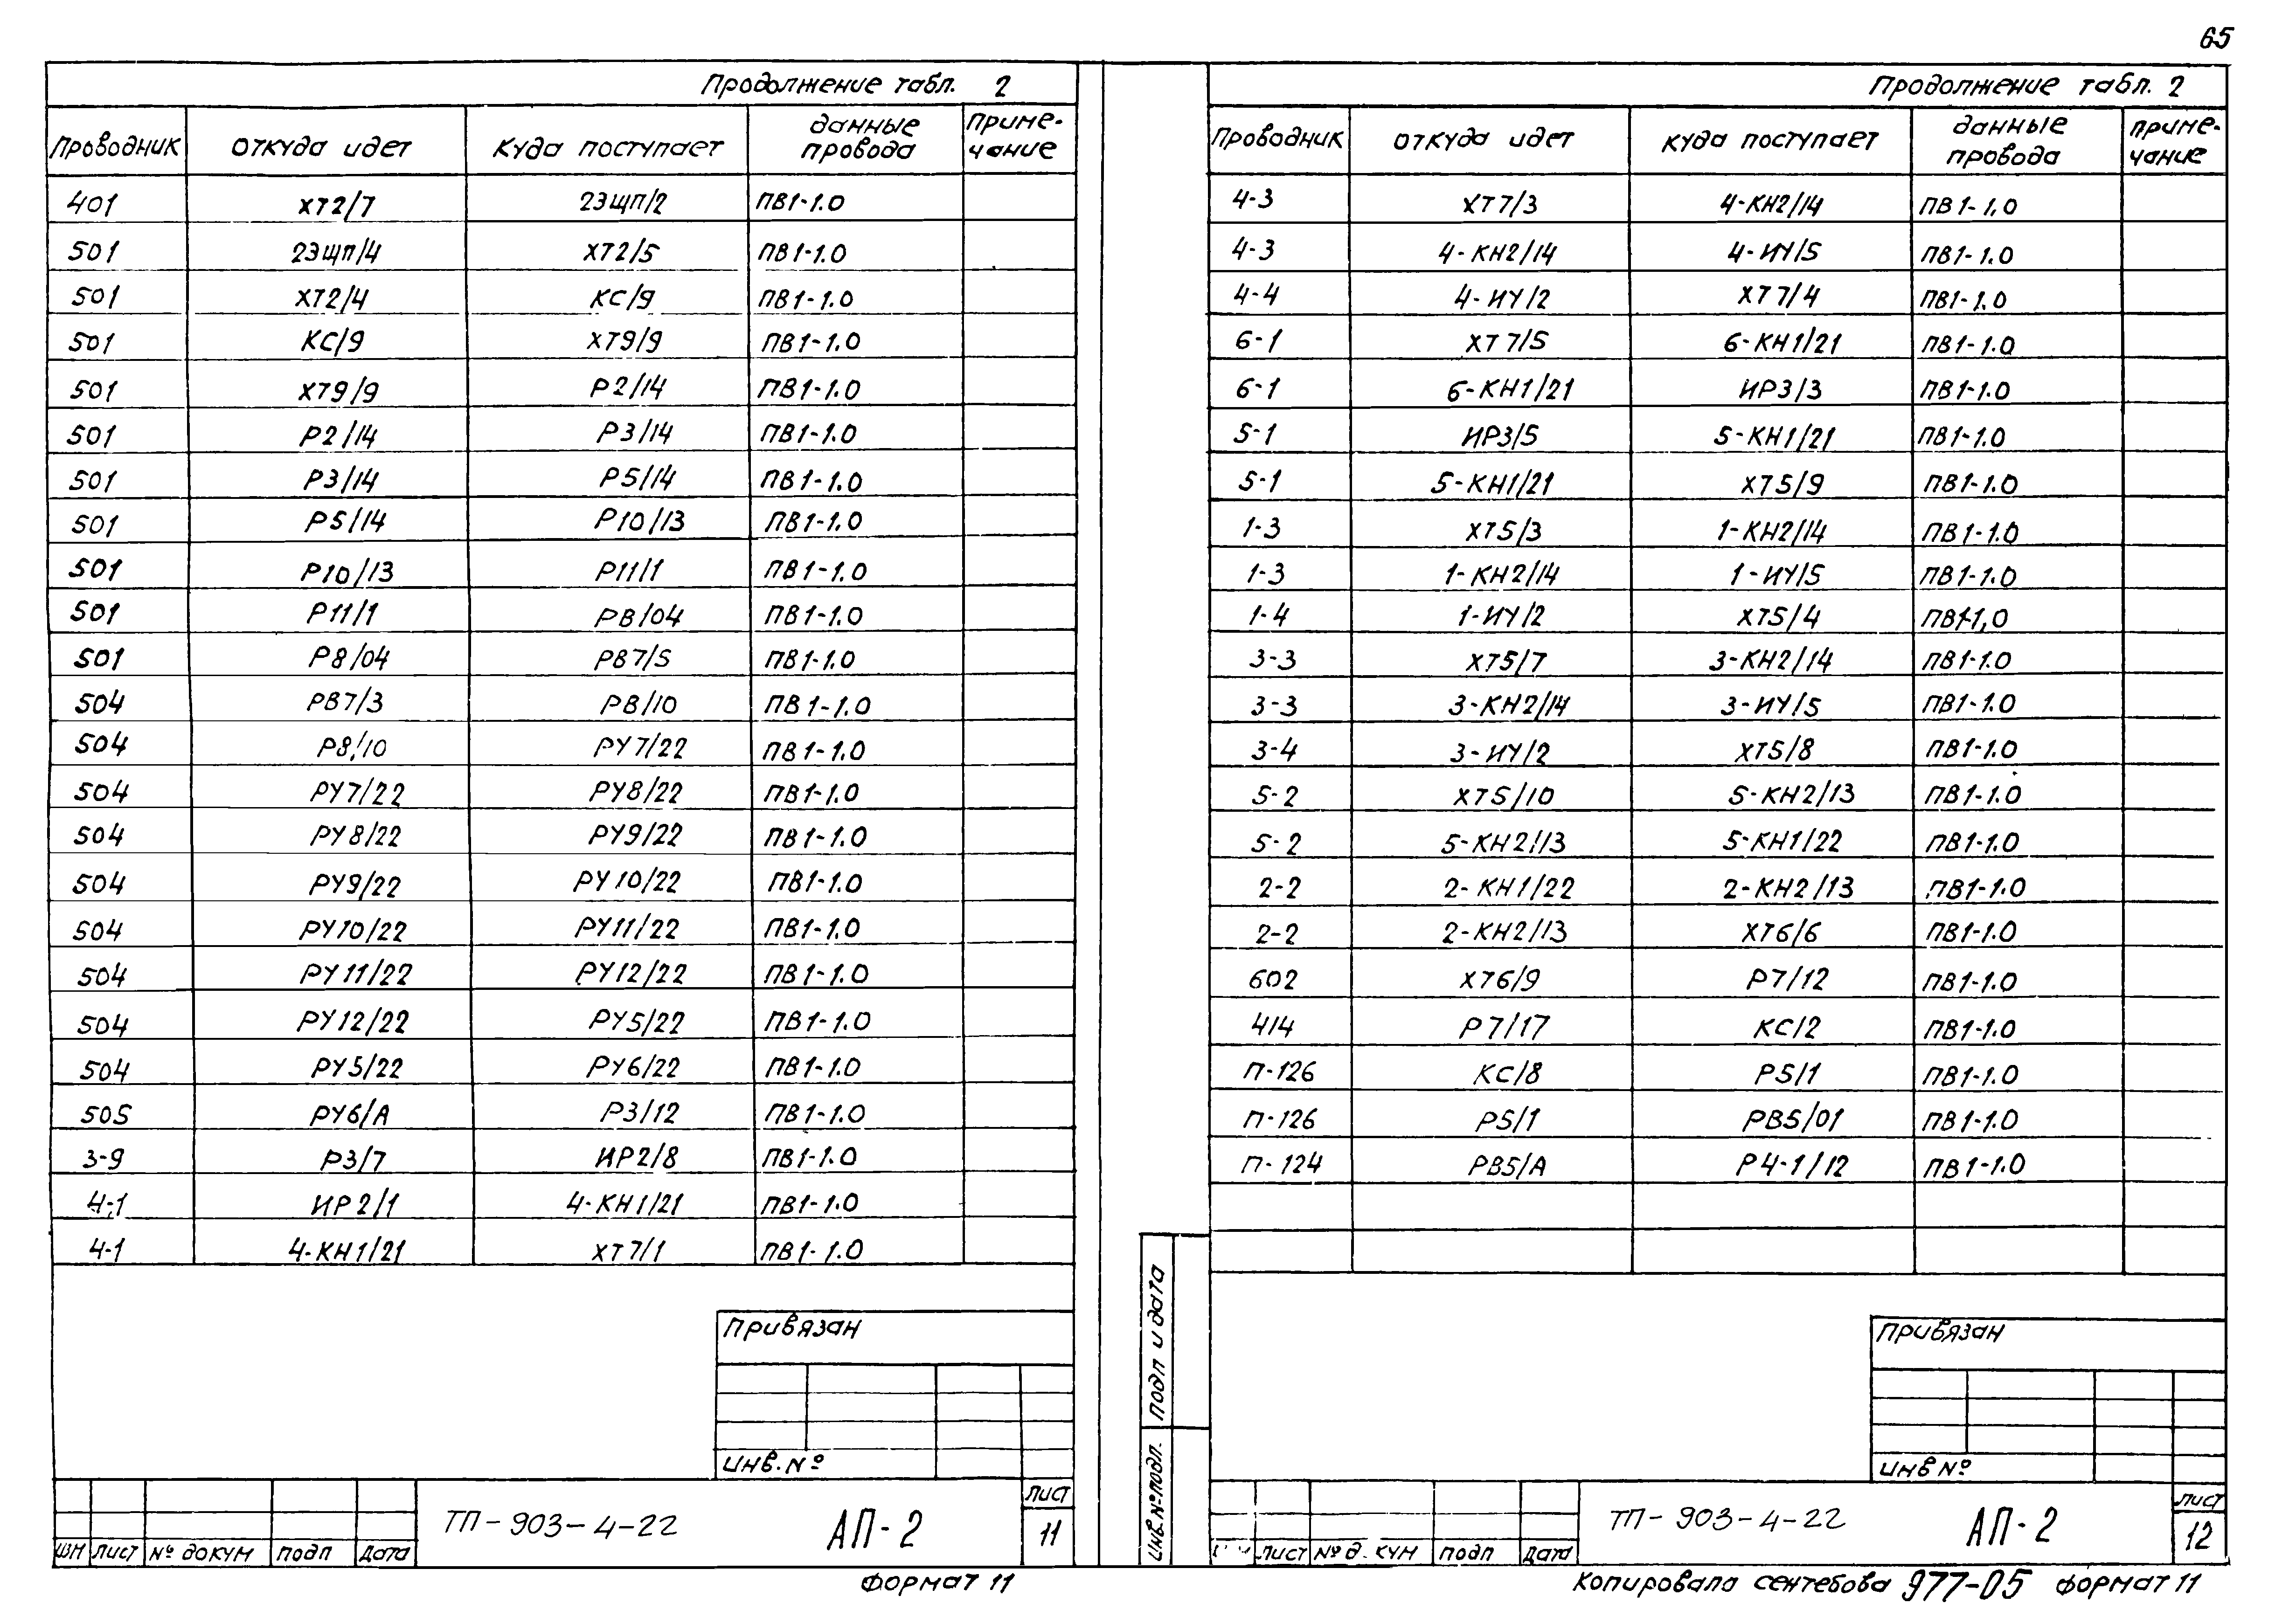 65
Продолжение табл. 2
Проводник откуда идет куда поступает данные провода приме-чание
401 ХТ2/7 2ЭЩП/2 ПВ1-1.0
501 2ЭЩП/4 ХТ2/5 ПВ1-1.0
501 ХТ2/4 КС/9 ПВ1-1.0
501 КС/9 ХТ9/9 ПВ1-1.0
501 ХТ9/9 Р2/14 ПВ1-1.0
501 Р2/14 Р3/14 ПВ1-1.0
501 Р3/14 Р5/14 ПВ1-1.0
501 Р5/14 Р10/13 ПВ1-1.0
501 Р10/13 Р11/1 ПВ1-1.0
501 Р11/1 Р8/04 ПВ1-1.0
501 Р8/04 РВ7/5 ПВ1-1.0
504 РВ7/3 Р8/10 ПВ1-1.0
504 Р8/10 РУ7/22 ПВ1-1.0
504 РУ7/22 РУ8/22 ПВ1-1.0
504 РУ8/22 РУ9/22 ПВ1-1.0
504 РУ9/22 РУ10/22 ПВ1-1.0
504 РУ10/22 РУ11/22 ПВ1-1.0
504 РУ11/22 РУ12/22 ПВ1-1.0
504 РУ12/22 РУ5/22 ПВ1-1.0
504 РУ5/22 РУ6/22 ПВ1-1.0
505 РУ6/А Р3/12 ПВ1-1.0
3-9 Р3/7 ИР2/8 ПВ1-1.0
4-1 ИР2/1 4-КН1/21 ПВ1-1.0
4-1 4-КН1/21 ХТ7/1 ПВ1-1.0
Привязан
инв.№
изм лист № докум подп дата
ТП-903-4-22 АП-2
лист
11
Формат 11
Продолжение табл. 2
Проводник откуда идет куда поступает данные провода приме-чание
4-3 ХТ7/3 4-КН2/14 ПВ1-1,0
4-3 4-КН2/14 4-ИУ/5 ПВ1-1.0
4-4 4-ИУ/2 ХТ7/4 ПВ1-1.0
6-1 ХТ7/5 6-КН1/21 ПВ1-1.0
6-1 6-КН1/21 ИР3/3 ПВ1-1.0
5-1 ИР3/5 5-КН1/21 ПВ1-1.0
5-1 5-КН1/21 ХТ5/9 ПВ1-1.0
1-3 ХТ5/3 1-КН2/14 ПВ1-1.0
1-3 1-КН2/14 1-ИУ/5 ПВ1-1.0
1-4 1-ИУ/2 ХТ5/4 ПВ1-1,0
3-3 ХТ5/7 3-КН2/14 ПВ1-1.0
3-3 3-КН2/14 3-ИУ/5 ПВ1-1.0
3-4 3-ИУ/2 ХТ5/8 ПВ1-1.0
5-2 ХТ5/10 5-КН2/13 ПВ1-1.0
5-2 5-КН2/13 5-КН1/22 ПВ1-1.0
2-2 2-КН1/22 2-КН2/13 ПВ1-1.0
2-2 2-КН2/13 ХТ6/6 ПВ1-1.0
602 ХТ6/9 Р7/12 ПВ1-1.0
414 Р7/17 КС/2 ПВ1-1.0
П-126 КС/8 Р5/1 ПВ1-1.0
П-126 Р5/1 РВ5/01 ПВ1-1.0
П-124 РВ5/А Р4-1/12 ПВ1-1.0
подп и дата
инв.№подл.
Привязан
инв №
лист подп дата
ТП-903-4-22 АП-2
лист
12
Копировала сентебова 977-05 формат 11